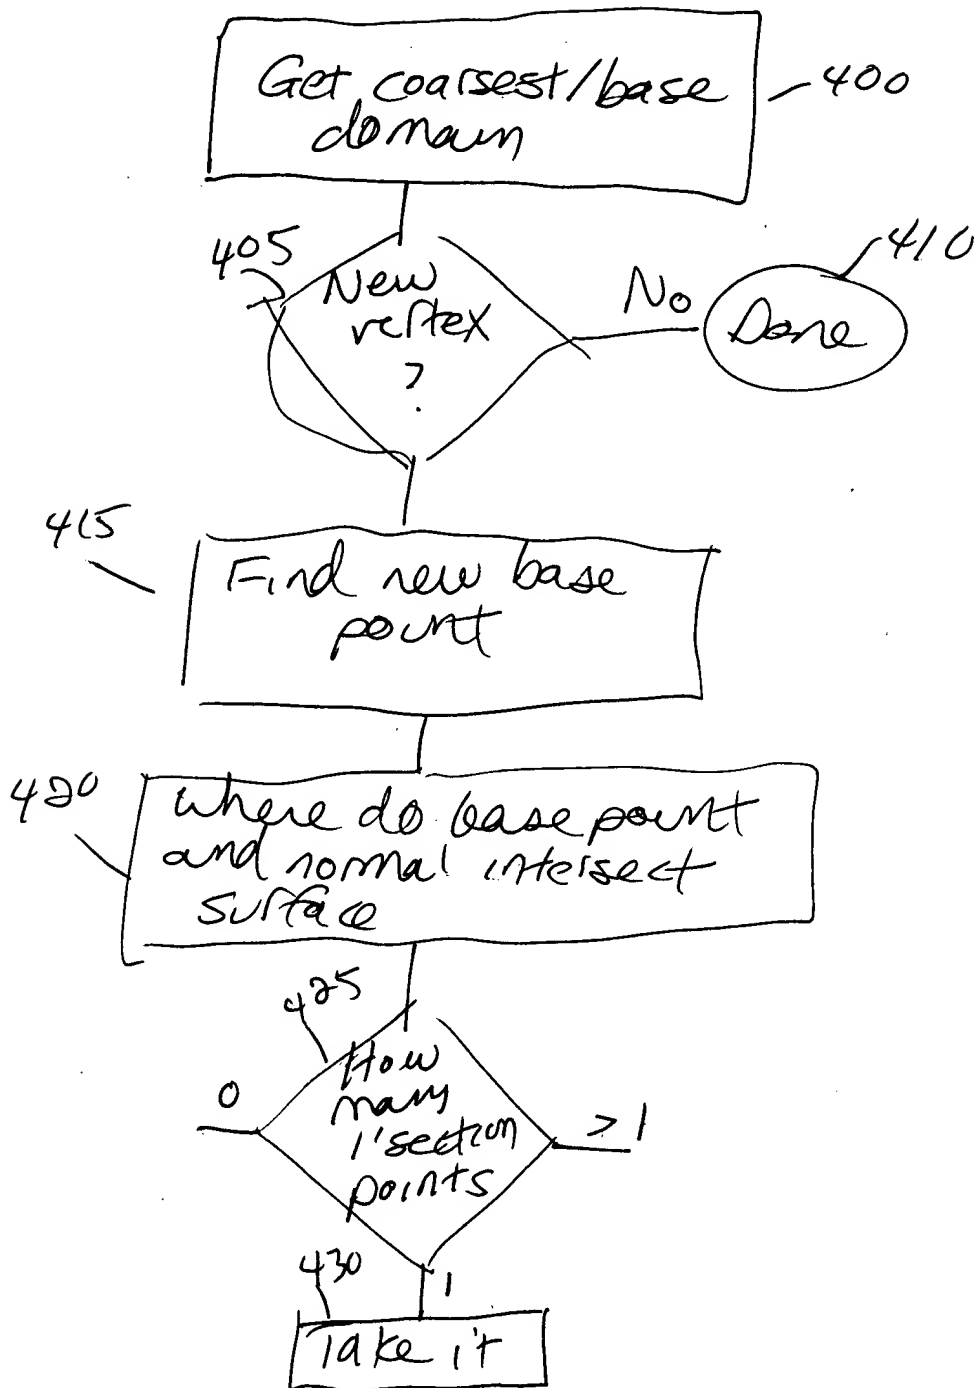 Get coarsest/base
domain
400
405
New
vertex
?
No
410
Done
415
Find new base
point
420
where do base point
and normal intersect
surface
425
How
many
i'section
points
0
>1
430
1
Take it